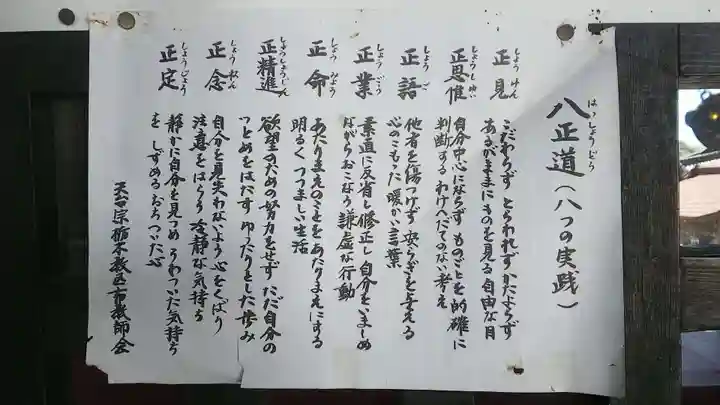 八正道(八つの実践)
はっしょうどう
正見
しょうけん
こだわらず とらわれず かたよらず
あるがままにものを見る自由な目
正思惟
しょうしゆい
自分中心にならず ものごとを的確に
判断する わけへだてのない考え
正語
しょうご
他者を傷つけず 安らぎを与える
心のこもった暖かい言葉
正業
しょうごう
素直に反省し修正し自分をいましめ
ながらおこなう謙虚な行動
正命
しょうみょう
あたりまえのことをあたりまえにする
明るくつつましい生活
正精進
しょうしょうじん
欲望のための努力をせず ただ自分の
つとめをはたす ゆったりとした歩み
正念
しょうねん
自分を見失わないよう心をくばり
注意をはらう 冷静な気持ち
正定
しょうじょう
静かに自分を見つめ うわついた気持ち
を しずめるおちついた心
天台宗栃木教区布教師会